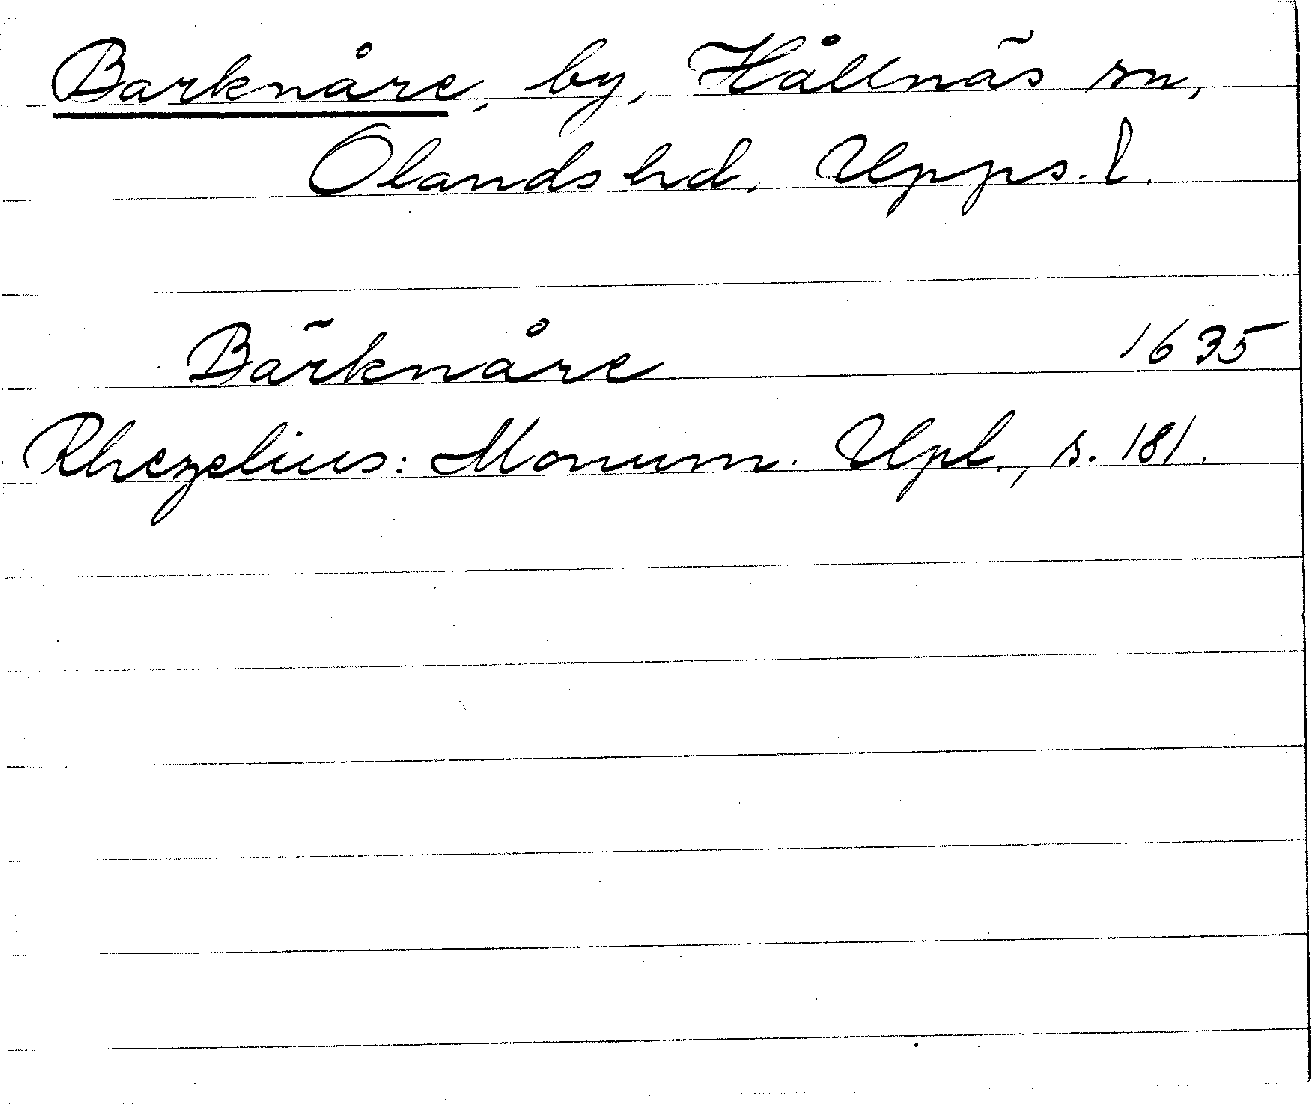 Barknåre, by, Hållnäs sn,
Olands hd. Upps. l.
Bärknåre 1635
Rhezelius: Monum. Upl., s. 181.